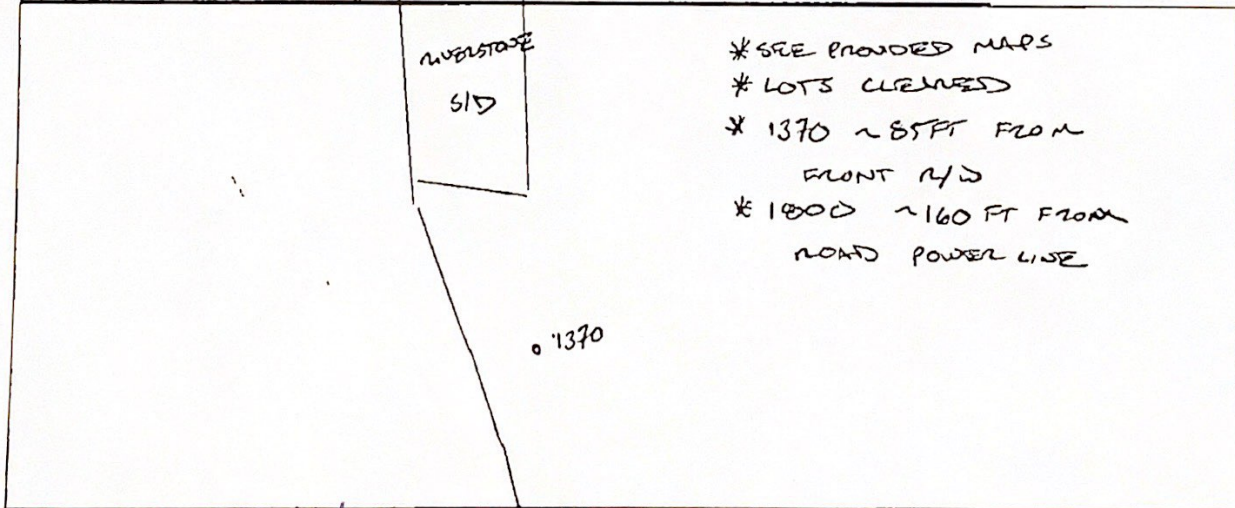 RIVERSTONE
S/D
* SEE PROVIDED MAPS
* LOTS CLEARED
* 1370 ~85FT FROM
FRONT R/W
* 1800 ~160 FT FROM
ROAD POWER LINE
1370